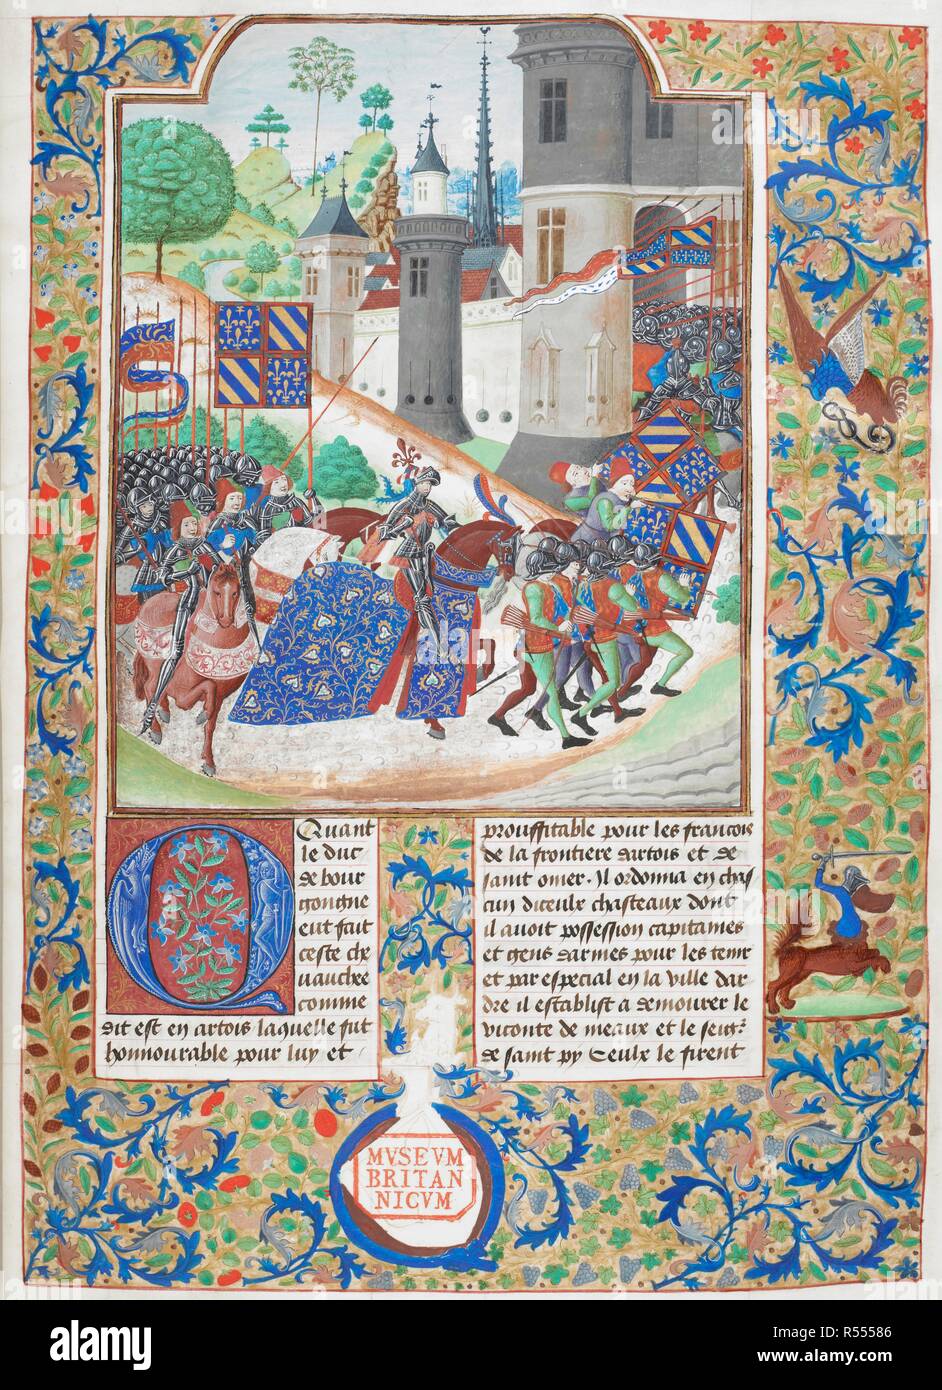 Quant
le duc
de bour
gongne
eut fait
ceste che
uauchee
comme
dit est en artois laquelle fut
honnourable pour luy et
prouffitable pour les francois
de la frontiere dartois et de
saint omer. Il ordonna en chas
cun diceulx chasteaux dont
il auoit possession capitaines
et gens darmes pour les tenir
et par especial en la ville dar
dre il establist a demourer le
viconte de meaux et le seur
de saint py Ceulx le firent
MVSEVM
BRITAN
NICVM
alamy
alamy
Image ID: R55586
www.alamy.com